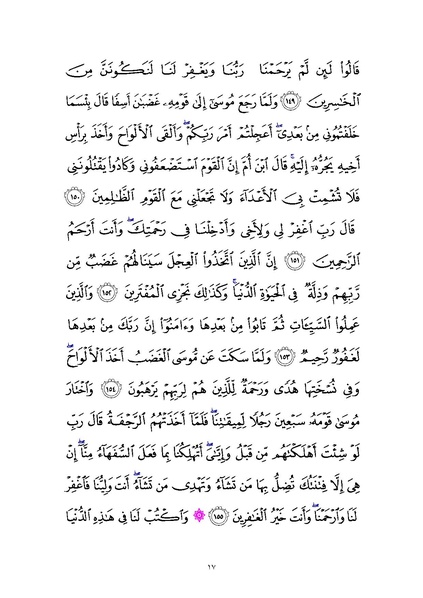 قَالُوا۟ لَئِن لَّمْ يَرْحَمْنَا رَبُّنَا وَيَغْفِرْ لَنَا لَنَكُونَنَّ مِنَ
ٱلْخَـٰسِرِينَ ١٤٩ وَلَمَّا رَجَعَ مُوسَىٰٓ إِلَىٰ قَوْمِهِۦ غَضْبَـٰنَ أَسِفًا قَالَ بِئْسَمَا
خَلَفْتُمُونِى مِنۢ بَعْدِىٓ ۖ أَعَجِلْتُمْ أَمْرَ رَبِّكُمْ ۖ وَأَلْقَى ٱلْأَلْوَاحَ وَأَخَذَ بِرَأْسِ
أَخِيهِ يَجُرُّهُۥٓ إِلَيْهِ ۚ قَالَ ٱبْنَ أُمَّ إِنَّ ٱلْقَوْمَ ٱسْتَضْعَفُونِى وَكَادُوا۟ يَقْتُلُونَنِى
فَلَا تُشْمِتْ بِىَ ٱلْأَعْدَآءَ وَلَا تَجْعَلْنِى مَعَ ٱلْقَوْمِ ٱلظَّـٰلِمِينَ ١٥٠
قَالَ رَبِّ ٱغْفِرْ لِى وَلِأَخِى وَأَدْخِلْنَا فِى رَحْمَتِكَ ۖ وَأَنتَ أَرْحَمُ
ٱلرَّٰحِمِينَ ١٥١ إِنَّ ٱلَّذِينَ ٱتَّخَذُوا۟ ٱلْعِجْلَ سَيَنَالُهُمْ غَضَبٌ مِّن
رَّبِّهِمْ وَذِلَّةٌ فِى ٱلْحَيَوٰةِ ٱلدُّنْيَا ۚ وَكَذَٰلِكَ نَجْزِى ٱلْمُفْتَرِينَ ١٥٢ وَٱلَّذِينَ
عَمِلُوا۟ ٱلسَّيِّـَٔاتِ ثُمَّ تَابُوا۟ مِنۢ بَعْدِهَا وَءَامَنُوٓا۟ إِنَّ رَبَّكَ مِنۢ بَعْدِهَا
لَغَفُورٌ رَّحِيمٌ ١٥٣ وَلَمَّا سَكَتَ عَن مُّوسَى ٱلْغَضَبُ أَخَذَ ٱلْأَلْوَاحَ ۖ
وَفِى نُسْخَتِهَا هُدًى وَرَحْمَةٌ لِّلَّذِينَ هُمْ لِرَبِّهِمْ يَرْهَبُونَ ١٥٤ وَٱخْتَارَ
مُوسَىٰ قَوْمَهُۥ سَبْعِينَ رَجُلًا لِّمِيقَـٰتِنَا ۖ فَلَمَّآ أَخَذَتْهُمُ ٱلرَّجْفَةُ قَالَ رَبِّ
لَوْ شِئْتَ أَهْلَكْتَهُم مِّن قَبْلُ وَإِيَّـٰىَ ۖ أَتُهْلِكُنَا بِمَا فَعَلَ ٱلسُّفَهَآءُ مِنَّآ ۖ إِنْ
هِىَ إِلَّا فِتْنَتُكَ تُضِلُّ بِهَا مَن تَشَآءُ وَتَهْدِى مَن تَشَآءُ ۖ أَنتَ وَلِيُّنَا فَٱغْفِرْ
لَنَا وَٱرْحَمْنَا ۖ وَأَنتَ خَيْرُ ٱلْغَـٰفِرِينَ ١٥٥ ۞ وَٱكْتُبْ لَنَا فِى هَـٰذِهِ ٱلدُّنْيَا
١٧